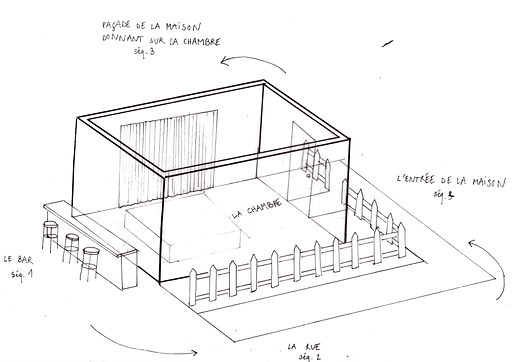 FAÇADE DE LA MAISON
DONNANT SUR LA CHAMBRE
séq. 3
L'ENTRÉE DE LA MAISON
séq. 3
LA CHAMBRE
LE BAR
séq. 1
LA RUE
séq. 2